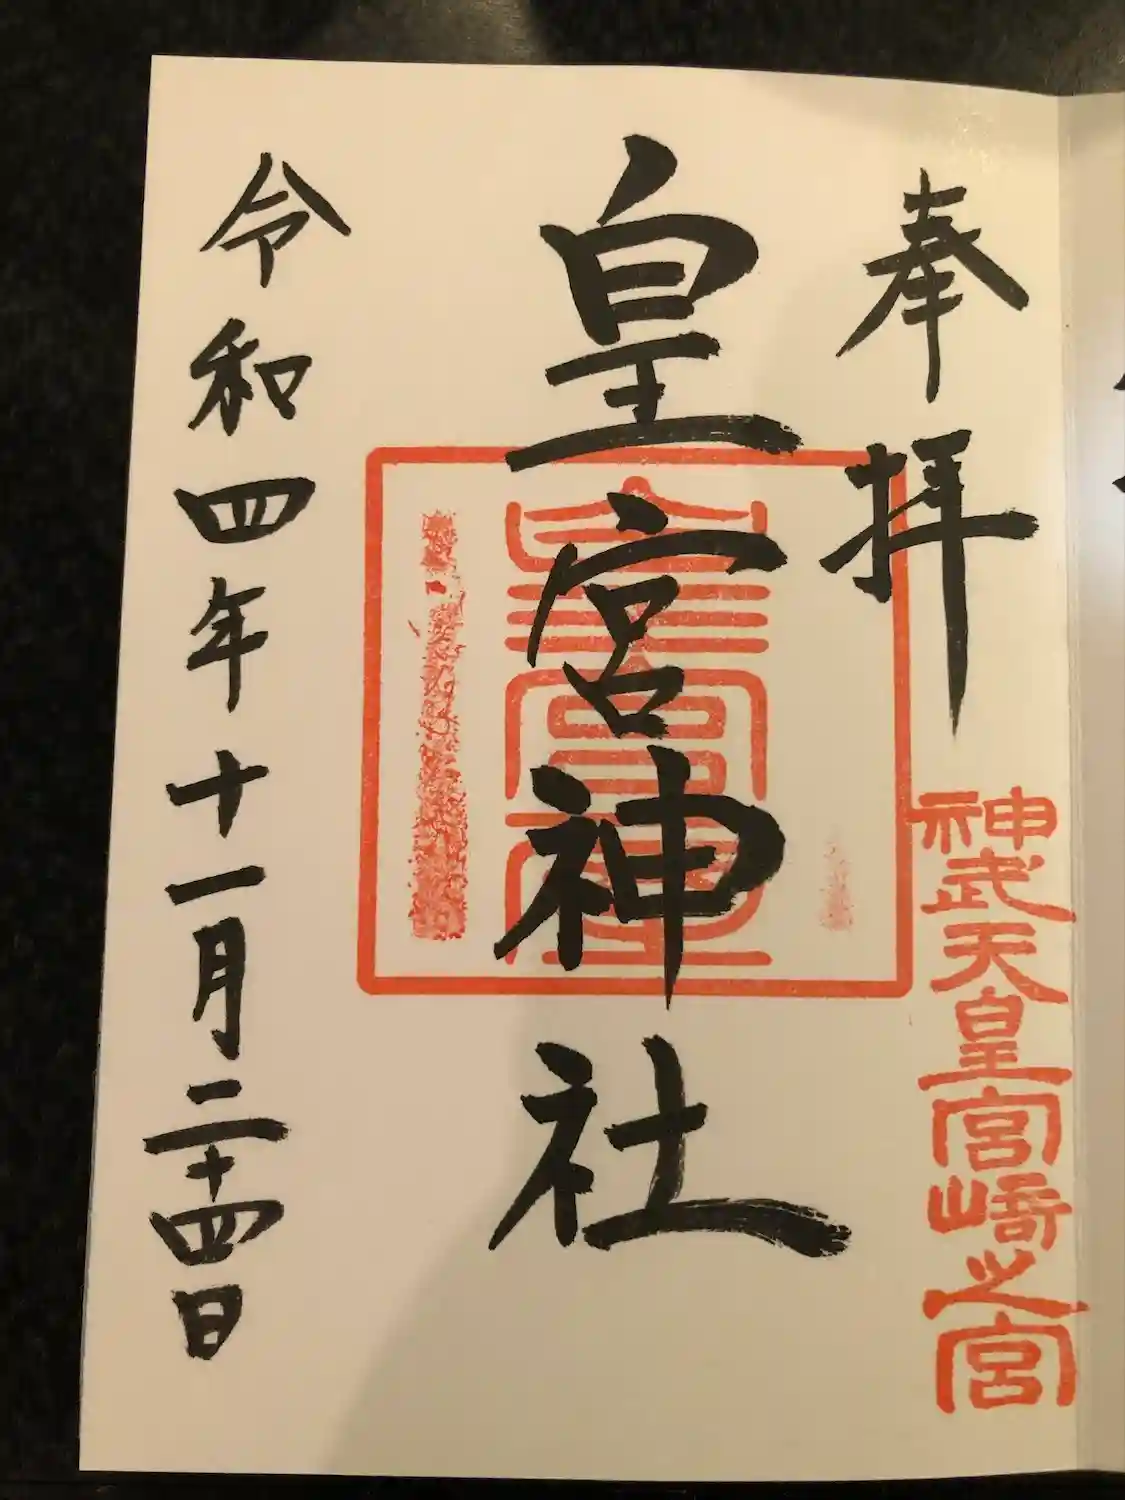 奉拝
神武天皇宮崎之宮
皇宮神社
皇宮
令和四年十一月二十四日